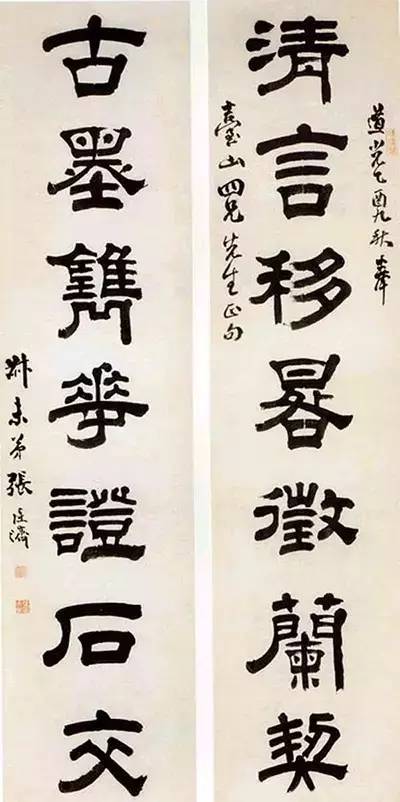 道光乙酉九秋奉
清言移晷徵蘭契
臺山四兄先生正句
古墨華證石交
叔未弟張廷濟